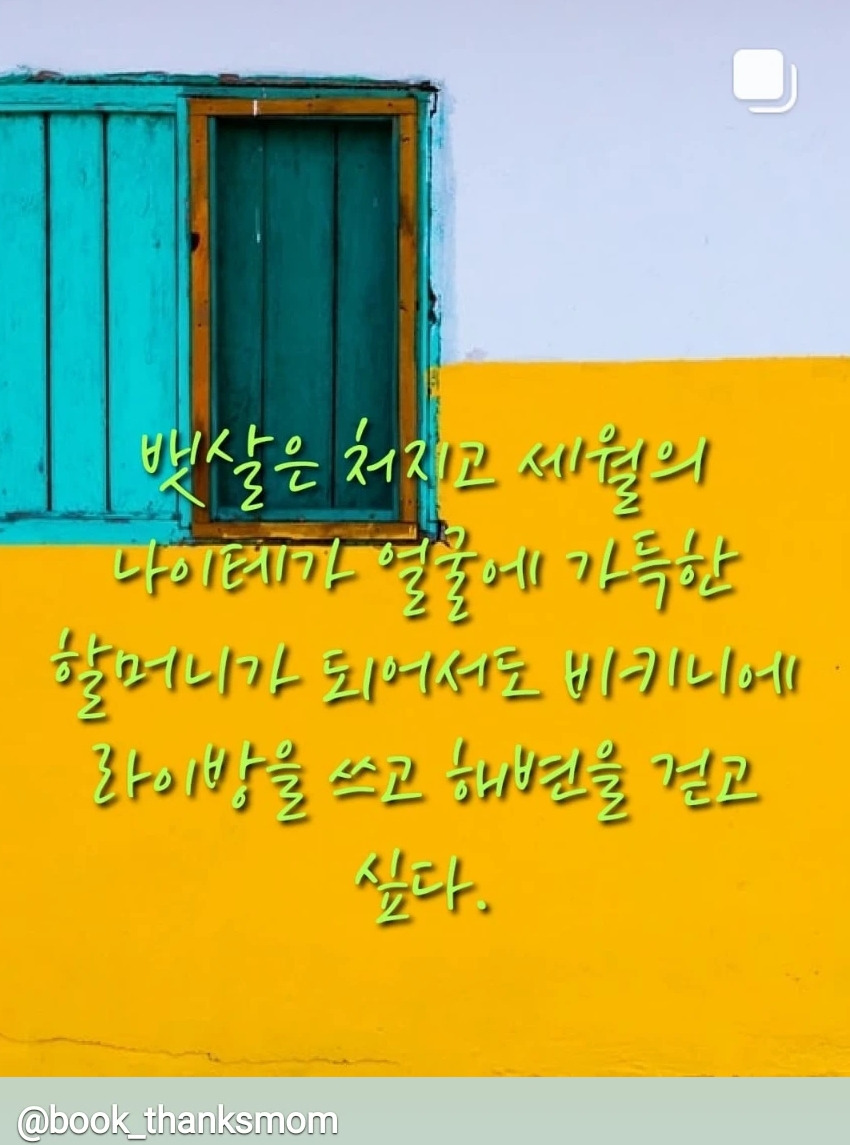 뱃살은 처지고 세월의
나이테가 얼굴에 가득한
할머니가 되어서도 비키니에
라이방을 쓰고 해변을 걷고
싶다.
@book_thanksmom